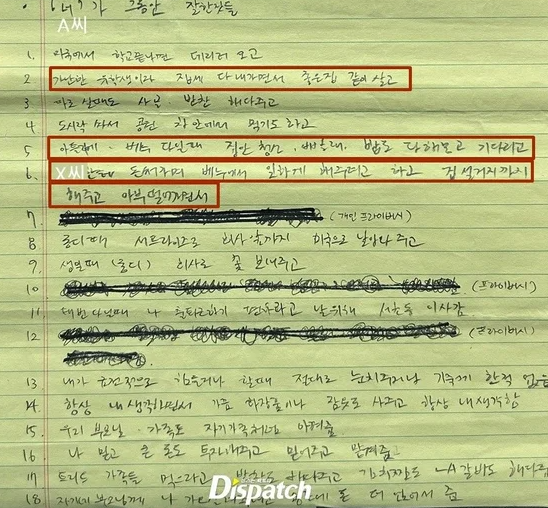 A씨 가 그동안 잘한것들
1. 미국에서 학교끝나면 데리러 오고
2 가난한 유학생이라 집세 다 내가면서 좋은집 같이 살고
3 아플때도 사본 반찬 해다주고
4 도시락 싸서 공원 차 안에서 먹기도 하고
5 다닐때 집안 청소, 빨래, 밥도 다 해놓고 기다리고
6. X씨 에서 일하게 해주려고 하고 접 설거지까지
해주고 아부 떨어가면서
7 (개인 프라이버시)
8 롱디때 서프라이즈로 회사 앞까지 미국으로 날아와 주고
9. 생일때 (롱디) 회사로 꽃 보내주고
10 (프라이버시)
11 나 출퇴근하기 편하라고 날위해 서초동 이사감
12 (프라이버시)
13 내가 금전적으로 할때 절대로 눈치주거나 기죽게 한적 없음
14. 항상 내생각하면서 가끔 화장품이나 잠옷도 사주고 항상 내생각함
15. 우리 부모님 가족도 자기가족처럼 아껴줌
16 나 믿고 큰 돈도 투자해주고 믿어주고 맡겨줌
17 가족들 먹으라고 해다주고 김치찜도 LA갈비도 해다주
18 자기네 부모님께 나 돈 더 얹어서 줌
Dispatch